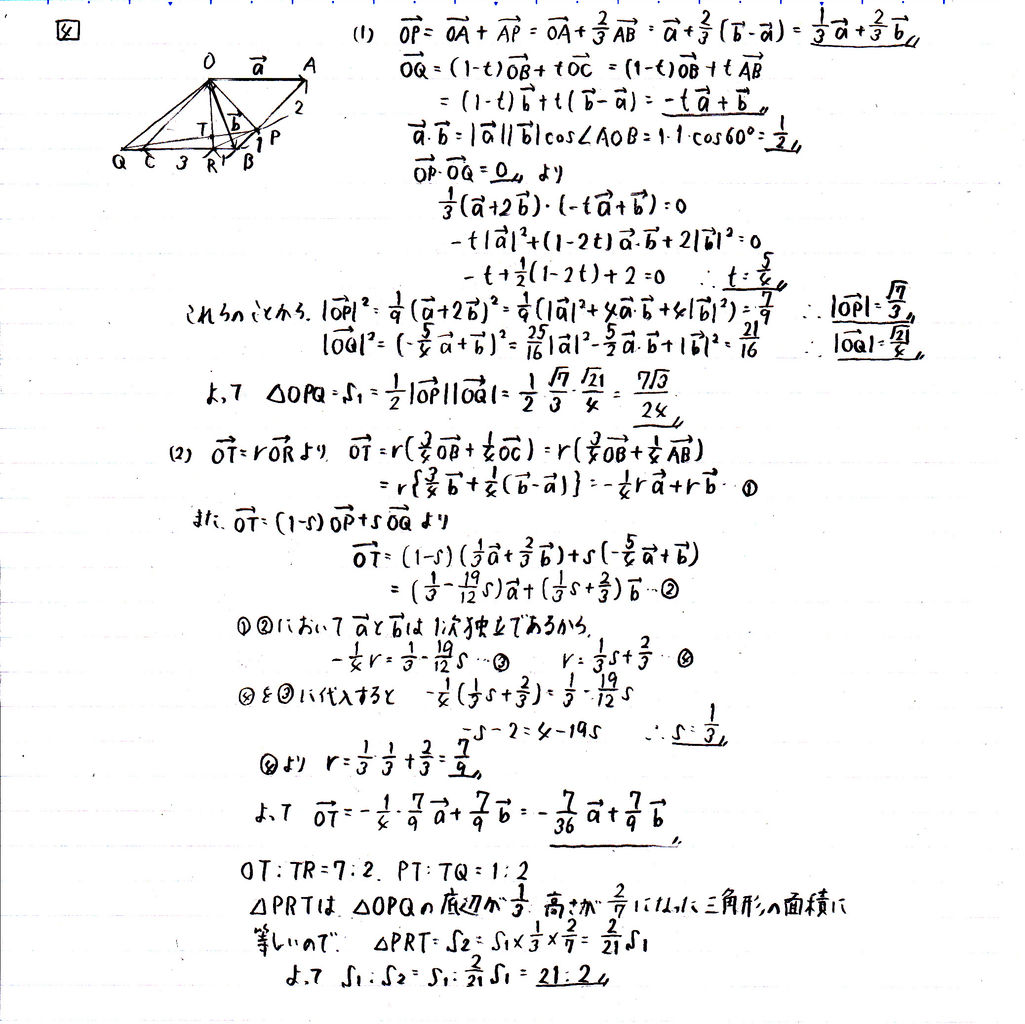 4
(1) OP→ = OA→ + AP→ = OA→ + 2/3 AB→ = a→ + 2/3 (b→ - a→) = 1/3 a→ + 2/3 b→
OQ→ = (1-t)OB→ + tOC→ = (1-t)OB→ + tAB→
= (1-t)b→ + t(b→ - a→) = -ta→ + b→
a→·b→ = |a→||b→|cos∠AOB = 1·1·cos60° = 1/2
OP→·OQ→ = 0 より
1/3(a→+2b→)·(-ta→+b→) = 0
-t|a→|²+(1-2t)a→·b→+2|b→|² = 0
-t+1/2(1-2t)+2=0 ∴ t=5/4
これらのことから、|OP→|² = 1/9(a→+2b→)² = 1/9(|a→|²+4a→·b→+4|b→|²) = 7/9 ∴ |OP→| = √7/3
|OQ→|² = (-5/4 a→+b→)² = 25/16|a→|² - 5/2 a→·b→ + |b→|² = 21/16 ∴ |OQ→| = √21/4
よって △OPQ = S₁ = 1/2|OP→||OQ→| = 1/2 · √7/3 · √21/4 = 7√3/24
(2) OT→ = rOR→ より OT→ = r(3/4 OB→ + 1/4 OC→) = r(3/4 OB→ + 1/4 AB→)
= r{3/4 b→ + 1/4(b→-a→)} = -1/4 ra→ + rb→ … ①
また、OT→ = (1-s)OP→ + sOQ→ より
OT→ = (1-s)(1/3 a→ + 2/3 b→) + s(-5/4 a→ + b→)
= (1/3 - 19/12 s)a→ + (1/3 s + 2/3)b→ … ②
①②において a→ と b→ は 1次独立であるから、
-1/4 r = 1/3 - 19/12 s … ③ r = 1/3 s + 2/3 … ④
④を③に代入すると -1/4(1/3 s + 2/3) = 1/3 - 19/12 s
-s-2=4-19s ∴ s=1/3
④より r = 1/3 · 1/3 + 2/3 = 7/9
よって OT→ = -1/4 · 7/9 a→ + 7/9 b→ = -7/36 a→ + 7/9 b→
OT:TR=7:2、PT:TQ=1:2
△PRTは △OPQの底辺が 1/3 高さが 2/7 になった三角形の面積に
等しいので、△PRT = S₂ = S₁ × 1/3 × 2/7 = 2/21 S₁
よって S₁:S₂ = S₁: 2/21 S₁ = 21:2
O a→ A
2
T b→ P
1
Q C 3 R 1 B